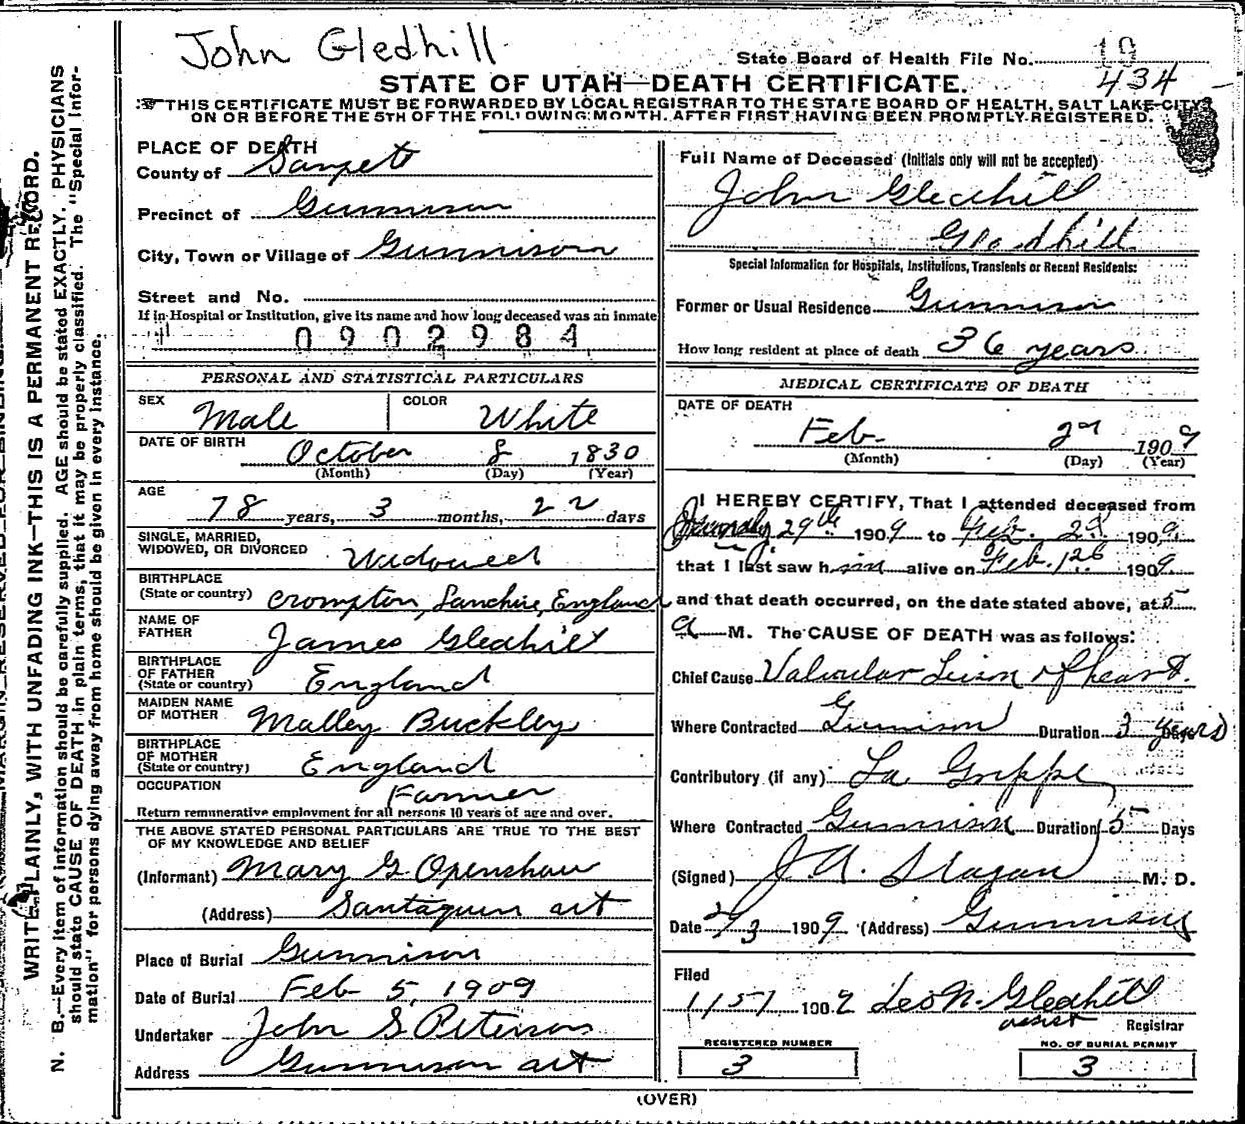 John Gledhill
State Board of Health File No. 19
434
STATE OF UTAH—DEATH CERTIFICATE.
THIS CERTIFICATE MUST BE FORWARDED BY LOCAL REGISTRAR TO THE STATE BOARD OF HEALTH, SALT LAKE CITY,
ON OR BEFORE THE 5TH OF THE FOLLOWING MONTH, AFTER FIRST HAVING BEEN PROMPTLY REGISTERED.
WRITE PLAINLY, WITH UNFADING INK—THIS IS A PERMANENT RECORD.
N. B.—Every item of information should be carefully supplied. AGE should be stated EXACTLY. PHYSICIANS
should state CAUSE OF DEATH in plain terms, that it may be properly classified. The "Special Infor-
mation" for persons dying away from home should be given in every instance.
PLACE OF DEATH
County of Sanpete
Precinct of Gunnison
City, Town or Village of Gunnison
Street and No.
If in Hospital or Institution, give its name and how long deceased was an inmate
0902984
PERSONAL AND STATISTICAL PARTICULARS
SEX Male COLOR White
DATE OF BIRTH October 8 1830
(Month) (Day) (Year)
AGE 78 years, 3 months, 22 days
SINGLE, MARRIED,
WIDOWED, OR DIVORCED Widowed
BIRTHPLACE
(State or country) Crompton, Lanchire, England
NAME OF
FATHER James Gledhill
BIRTHPLACE
OF FATHER
(State or country) England
MAIDEN NAME
OF MOTHER Malley Buckley
BIRTHPLACE
OF MOTHER
(State or country) England
OCCUPATION Farmer
Return remunerative employment for all persons 10 years of age and over.
THE ABOVE STATED PERSONAL PARTICULARS ARE TRUE TO THE BEST
OF MY KNOWLEDGE AND BELIEF
(Informant) Mary G Openshaw
(Address) Santaquin
Place of Burial Gunnison
Date of Burial Feb 5, 1909
Undertaker John S Peterson
Address Gunnison
Full Name of Deceased (Initials only will not be accepted)
John Gledhill
Gledhill
Special Information for Hospitals, Institutions, Transients or Recent Residents:
Former or Usual Residence Gunnison
How long resident at place of death 36 years
MEDICAL CERTIFICATE OF DEATH
DATE OF DEATH
Feb. 2d 1909
(Month) (Day) (Year)
I HEREBY CERTIFY, That I attended deceased from
29th 1909 to Feb. 2d 1909
that I last saw him alive on Feb. 1909
and that death occurred, on the date stated above, at 5
a M. The CAUSE OF DEATH was as follows:
Chief Cause Valvular Leison of heart.
Where Contracted Gunnison Duration 3 years
Contributory (if any) La Grippe
Where Contracted Gunnison Duration 5 Days
(Signed) J A. Hagan M. D.
Date 2/3 1909 (Address) Gunnison
Filed
1909 Leo N. Gledhill
assist Registrar
REGISTERED NUMBER
3
NO. OF BURIAL PERMIT
3
(OVER)